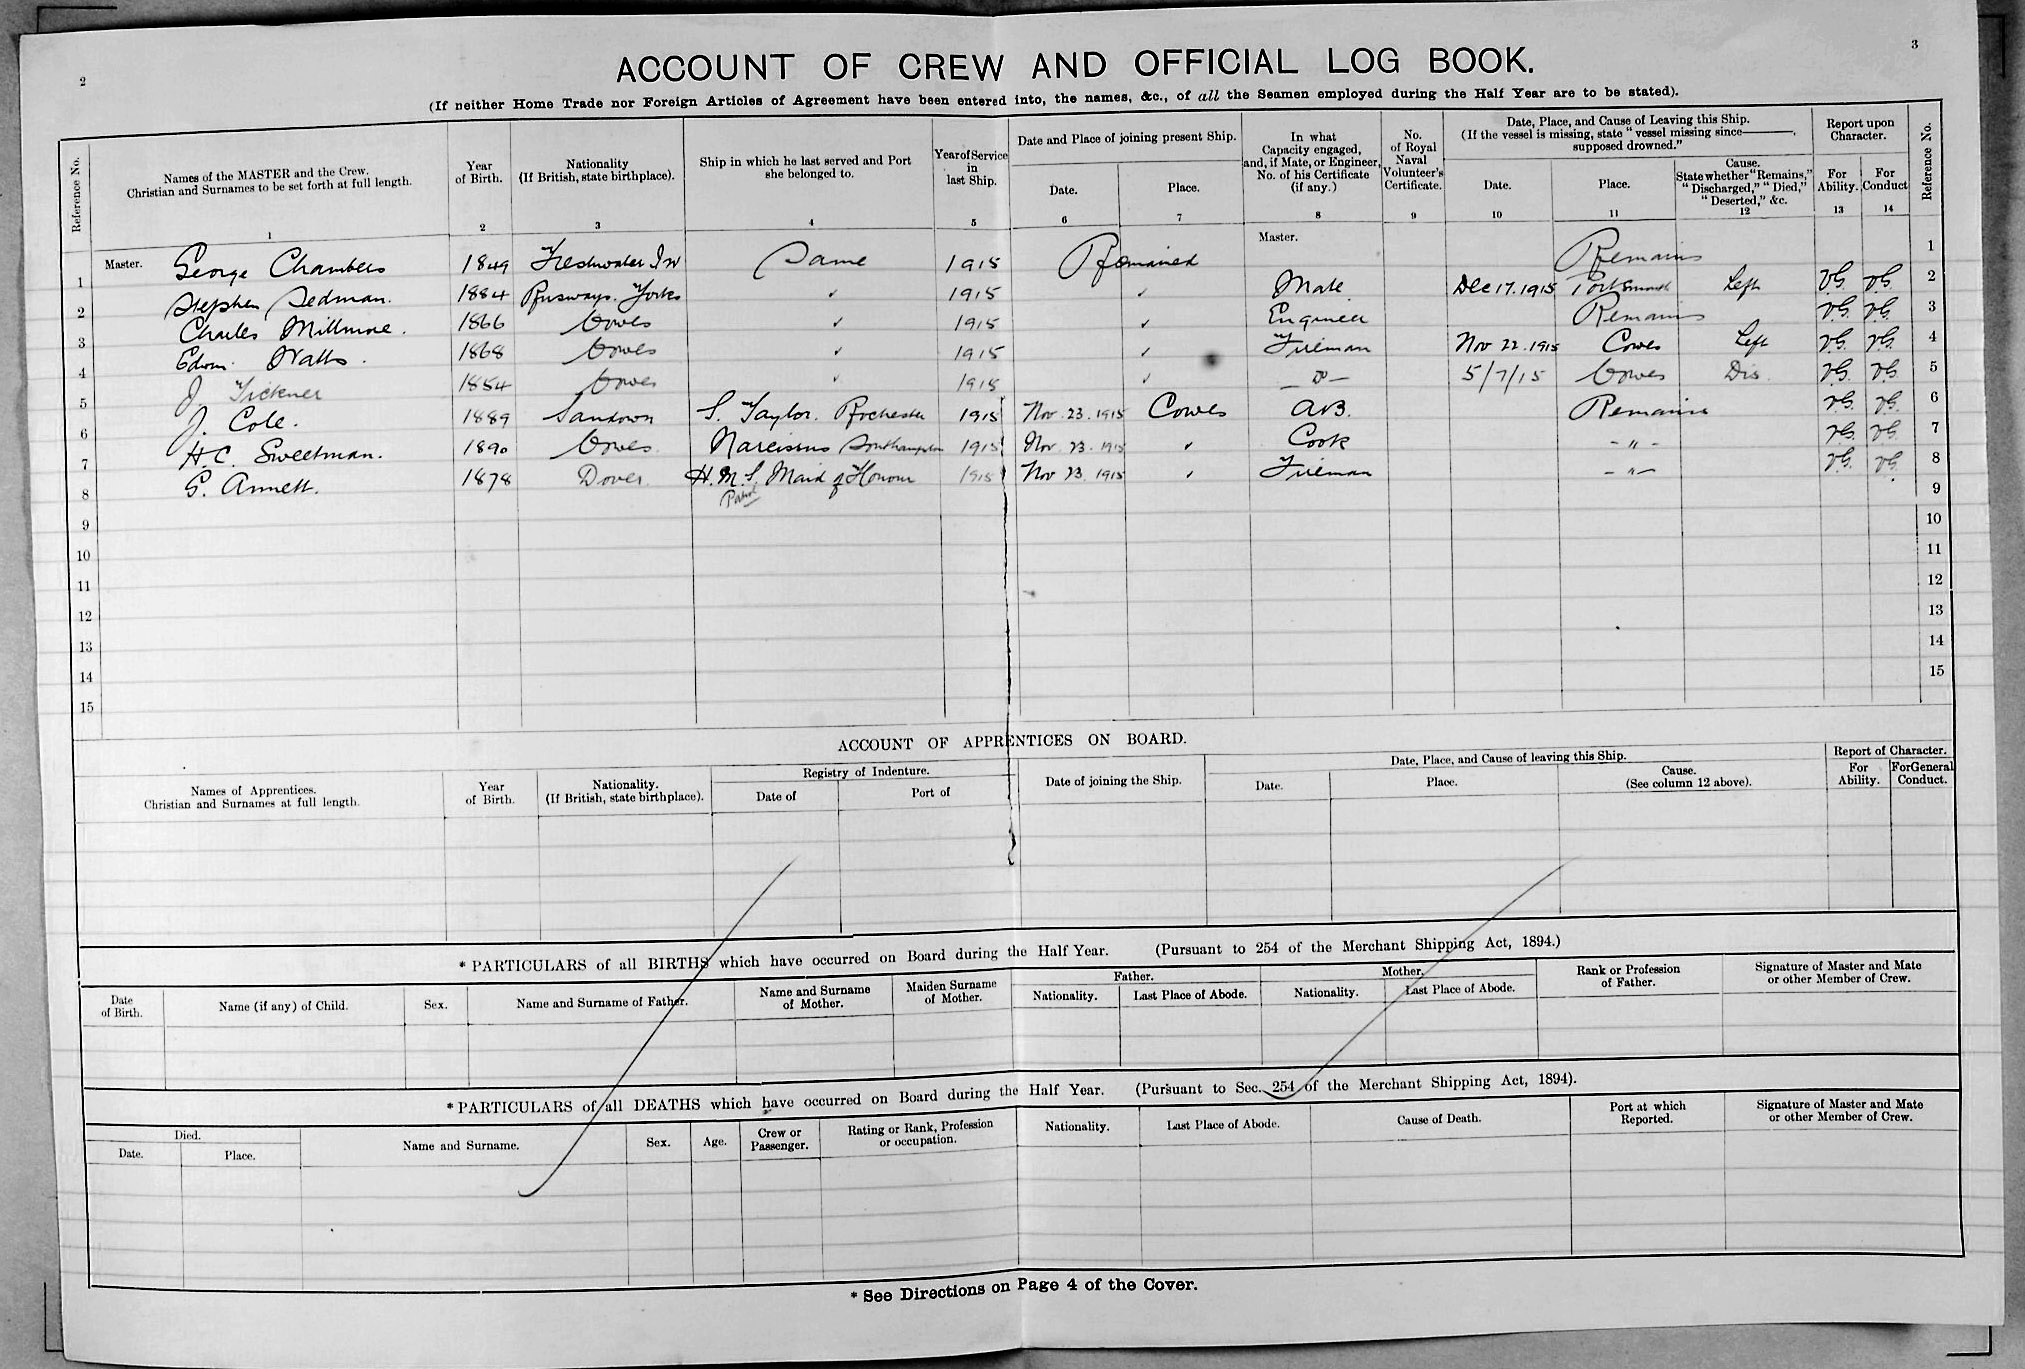 2
3
ACCOUNT OF CREW AND OFFICIAL LOG BOOK.
(If neither Home Trade nor Foreign Articles of Agreement have been entered into, the names, &c., of all the Seamen employed during the Half Year are to be stated).
Reference No. Names of the MASTER and the Crew. Christian and Surnames to be set forth at full length. Year of Birth. Nationality (If British, state birthplace). Ship in which he last served and Port she belonged to. Year of Service in last Ship. Date and Place of joining present Ship. Date. Place. In what Capacity engaged, and, if Mate, or Engineer, No. of his Certificate (if any.) No. of Royal Naval Volunteer's Certificate. Date, Place, and Cause of Leaving this Ship. (If the vessel is missing, state "vessel missing since———, supposed drowned." Date. Place. Cause. State whether "Remains," "Discharged," "Died," "Deserted," &c. Report upon Character. For Ability. For Conduct Reference No.
1 2 3 4 5 6 7 8 9 10 11 12 13 14
1 Master. George Chambers 1849 Freshwater I W Same 1915 Remained Master. Remains 1
2 Stephen Sedman. 1884 Yorks ✓ 1915 ✓ Mate Dec 17. 1915 Portsmouth Left V.G. V.G. 2
3 Charles Millmore. 1866 Cowes ✓ 1915 ✓ Engineer Remains V.G. V.G. 3
4 Edwin Watts. 1868 Cowes ✓ 1915 ✓ Fireman Nov 22. 1915 Cowes Left V.G. V.G. 4
5 J. Tickner 1854 Cowes ✓ 1915 ✓ — Do — 5/7/15 Cowes Dis. V.G. V.G. 5
6 J. Cole. 1889 Sandown S. Taylor. Rochester 1915 Nov. 23. 1915 Cowes A.B. Remains V.G. V.G. 6
7 H.C. Sweetman. 1890 Cowes Narcissus Southampton 1915 Nov. 23. 1915 ✓ Cook - " - V.G. V.G. 7
8 G. Annett. 1878 Dover H.M.S. Maid of Honour 1915 Nov 23. 1915 ✓ Fireman - " - V.G. V.G. 8
Patrol
9 9
10 10
11 11
12 12
13 13
14 14
15 15
ACCOUNT OF APPRENTICES ON BOARD.
Names of Apprentices. Christian and Surnames at full length. Year of Birth. Nationality. (If British, state birthplace). Registry of Indenture. Date of Port of Date of joining the Ship. Date, Place, and Cause of leaving this Ship. Date. Place. Cause. (See column 12 above). Report of Character. For Ability. For General Conduct.
* PARTICULARS of all BIRTHS which have occurred on Board during the Half Year. (Pursuant to 254 of the Merchant Shipping Act, 1894.)
Date of Birth. Name (if any) of Child. Sex. Name and Surname of Father. Name and Surname of Mother. Maiden Surname of Mother. Father. Nationality. Last Place of Abode. Mother. Nationality. Last Place of Abode. Rank or Profession of Father. Signature of Master and Mate or other Member of Crew.
* PARTICULARS of all DEATHS which have occurred on Board during the Half Year. (Pursuant to Sec. 254 of the Merchant Shipping Act, 1894).
Died. Date. Place. Name and Surname. Sex. Age. Crew or Passenger. Rating or Rank, Profession or occupation. Nationality. Last Place of Abode. Cause of Death. Port at which Reported. Signature of Master and Mate or other Member of Crew.
* See Directions on Page 4 of the Cover.